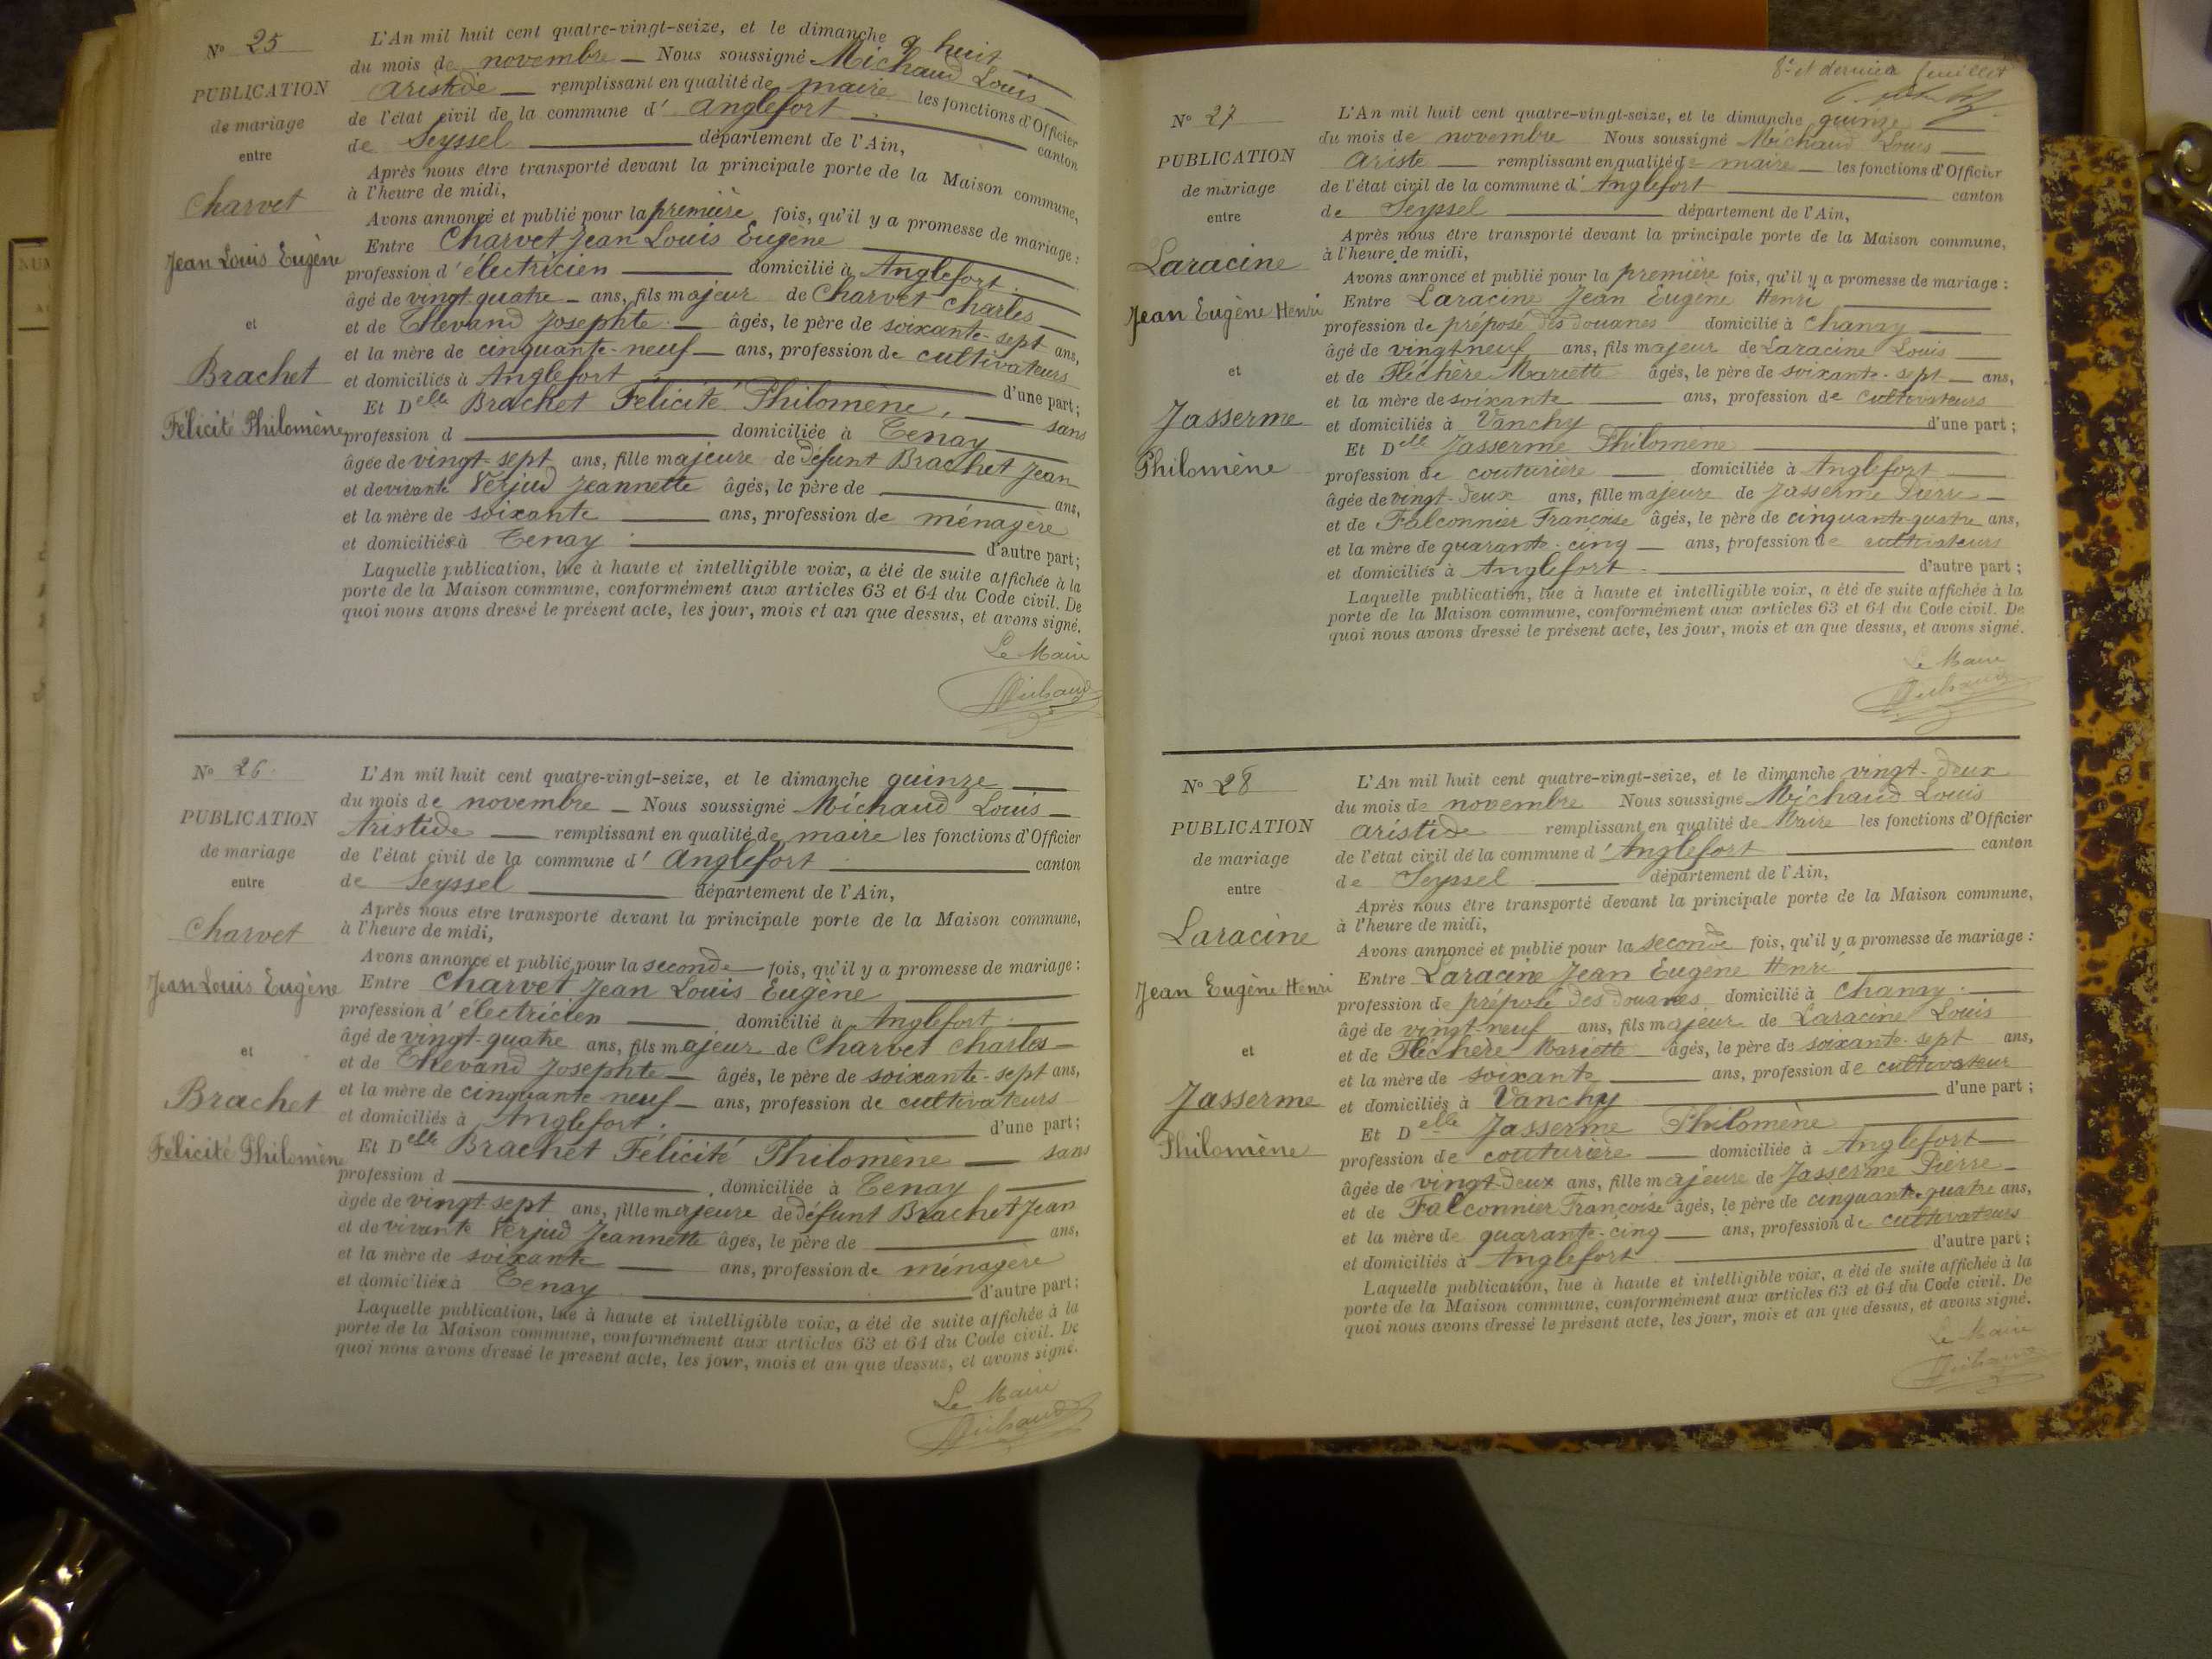 N° 25
PUBLICATION
de mariage
entre
Charvet
Jean Louis Eugène
et
Brachet
Félicité Philomène
L'An mil huit cent quatre-vingt-seize, et le dimanche huit
du mois de novembre — Nous soussigné Michaud Louis
Aristide — remplissant en qualité de maire les fonctions d'Officier
de l'état civil de la commune d' Anglefort canton
de Seyssel département de l'Ain,
Après nous être transporté devant la principale porte de la Maison commune,
à l'heure de midi,
Avons annoncé et publié pour la première fois, qu'il y a promesse de mariage :
Entre Charvet Jean Louis Eugène
profession d' électricien domicilié à Anglefort
âgé de vingt-quatre — ans, fils majeur de Charvet Charles
et de Thevand Josephte — âgés, le père de soixante-sept ans,
et la mère de cinquante-neuf — ans, profession de cultivateurs
et domiciliés à Anglefort d'une part ;
Et Delle Brachet Félicité Philomène, — sans
profession d domiciliée à Tenay
âgée de vingt-sept ans, fille majeure de défunt Brachet Jean
et de vivante Verjud Jeannette âgés, le père de ans,
et la mère de soixante ans, profession de ménagère
et domiciliés à Tenay d'autre part ;
Laquelle publication, lue à haute et intelligible voix, a été de suite affichée à la
porte de la Maison commune, conformément aux articles 63 et 64 du Code civil. De
quoi nous avons dressé le présent acte, les jour, mois et an que dessus, et avons signé.
Le Maire
Michaud
N° 26
PUBLICATION
de mariage
entre
Charvet
Jean Louis Eugène
et
Brachet
Félicité Philomène
L'An mil huit cent quatre-vingt-seize, et le dimanche quinze
du mois de novembre — Nous soussigné Michaud Louis —
Aristide — remplissant en qualité de maire les fonctions d'Officier
de l'état civil de la commune d' Anglefort canton
de Seyssel département de l'Ain,
Après nous être transporté devant la principale porte de la Maison commune,
à l'heure de midi,
Avons annoncé et publié pour la seconde fois, qu'il y a promesse de mariage :
Entre Charvet Jean Louis Eugène
profession d' électricien domicilié à Anglefort
âgé de vingt-quatre ans, fils majeur de Charvet Charles —
et de Thevand Josephte — âgés, le père de soixante-sept ans,
et la mère de cinquante neuf — ans, profession de cultivateurs
et domiciliés à Anglefort. d'une part ;
Et Delle Brachet Félicité Philomène — sans
profession d domiciliée à Tenay
âgée de vingt-sept ans, fille majeure de défunt Brachet Jean
et de vivante Verjud Jeannette âgés, le père de ans,
et la mère de soixante ans, profession de ménagère
et domiciliés à Tenay d'autre part ;
Laquelle publication, lue à haute et intelligible voix, a été de suite affichée à la
porte de la Maison commune, conformément aux articles 63 et 64 du Code civil. De
quoi nous avons dressé le présent acte, les jour, mois et an que dessus, et avons signé.
Le Maire
Michaud
8e et dernier feuillet
N° 27
PUBLICATION
de mariage
entre
Laracine
Jean Eugène Henri
et
Jasserme
Philomène
L'An mil huit cent quatre-vingt-seize, et le dimanche quinze
du mois de novembre Nous soussigné Michaud Louis
Ariste — remplissant en qualité de maire — les fonctions d'Officier
de l'état civil de la commune d' Anglefort canton
de Seyssel département de l'Ain,
Après nous être transporté devant la principale porte de la Maison commune,
à l'heure de midi,
Avons annoncé et publié pour la première fois, qu'il y a promesse de mariage :
Entre Laracine Jean Eugène Henri
profession de préposé des douanes domicilié à Chanay
âgé de vingt neuf ans, fils majeur de Laracine Louis
et de Fléchère Mariette âgés, le père de soixante-sept — ans,
et la mère de soixante ans, profession de cultivateurs
et domiciliés à Vanchy d'une part ;
Et Delle Jasserme Philomène
profession de couturière domiciliée à Anglefort
âgée de vingt-deux ans, fille majeure de Jasserme Pierre —
et de Falconnier Françoise âgés, le père de cinquante-quatre ans,
et la mère de quarante-cinq — ans, profession de cultivateurs
et domiciliés à Anglefort. d'autre part ;
Laquelle publication, lue à haute et intelligible voix, a été de suite affichée à la
porte de la Maison commune, conformément aux articles 63 et 64 du Code civil. De
quoi nous avons dressé le présent acte, les jour, mois et an que dessus, et avons signé.
Le Maire
Michaud
N° 28
PUBLICATION
de mariage
entre
Laracine
Jean Eugène Henri
et
Jasserme
Philomène
L'An mil huit cent quatre-vingt-seize, et le dimanche vingt-deux
du mois de novembre Nous soussigné Michaud Louis
Aristide remplissant en qualité de Maire les fonctions d'Officier
de l'état civil de la commune d' Anglefort canton
de Seyssel département de l'Ain,
Après nous être transporté devant la principale porte de la Maison commune,
à l'heure de midi,
Avons annoncé et publié pour la seconde fois, qu'il y a promesse de mariage :
Entre Laracine Jean Eugène Henri
profession de préposé des douanes domicilié à Chanay
âgé de vingt-neuf ans, fils majeur de Laracine Louis
et de Fléchère Mariette âgés, le père de soixante-sept ans,
et la mère de soixante ans, profession de cultivateur
et domiciliés à Vanchy d'une part ;
Et Delle Jasserme Philomène
profession de couturière — domiciliée à Anglefort
âgée de vingt-deux ans, fille majeure de Jasserme Pierre —
et de Falconnier Françoise âgés, le père de cinquante-quatre ans,
et la mère de quarante-cinq — ans, profession de cultivateurs
et domiciliés à Anglefort d'autre part ;
Laquelle publication, lue à haute et intelligible voix, a été de suite affichée à la
porte de la Maison commune, conformément aux articles 63 et 64 du Code civil. De
quoi nous avons dressé le présent acte, les jour, mois et an que dessus, et avons signé.
Le Maire
Michaud